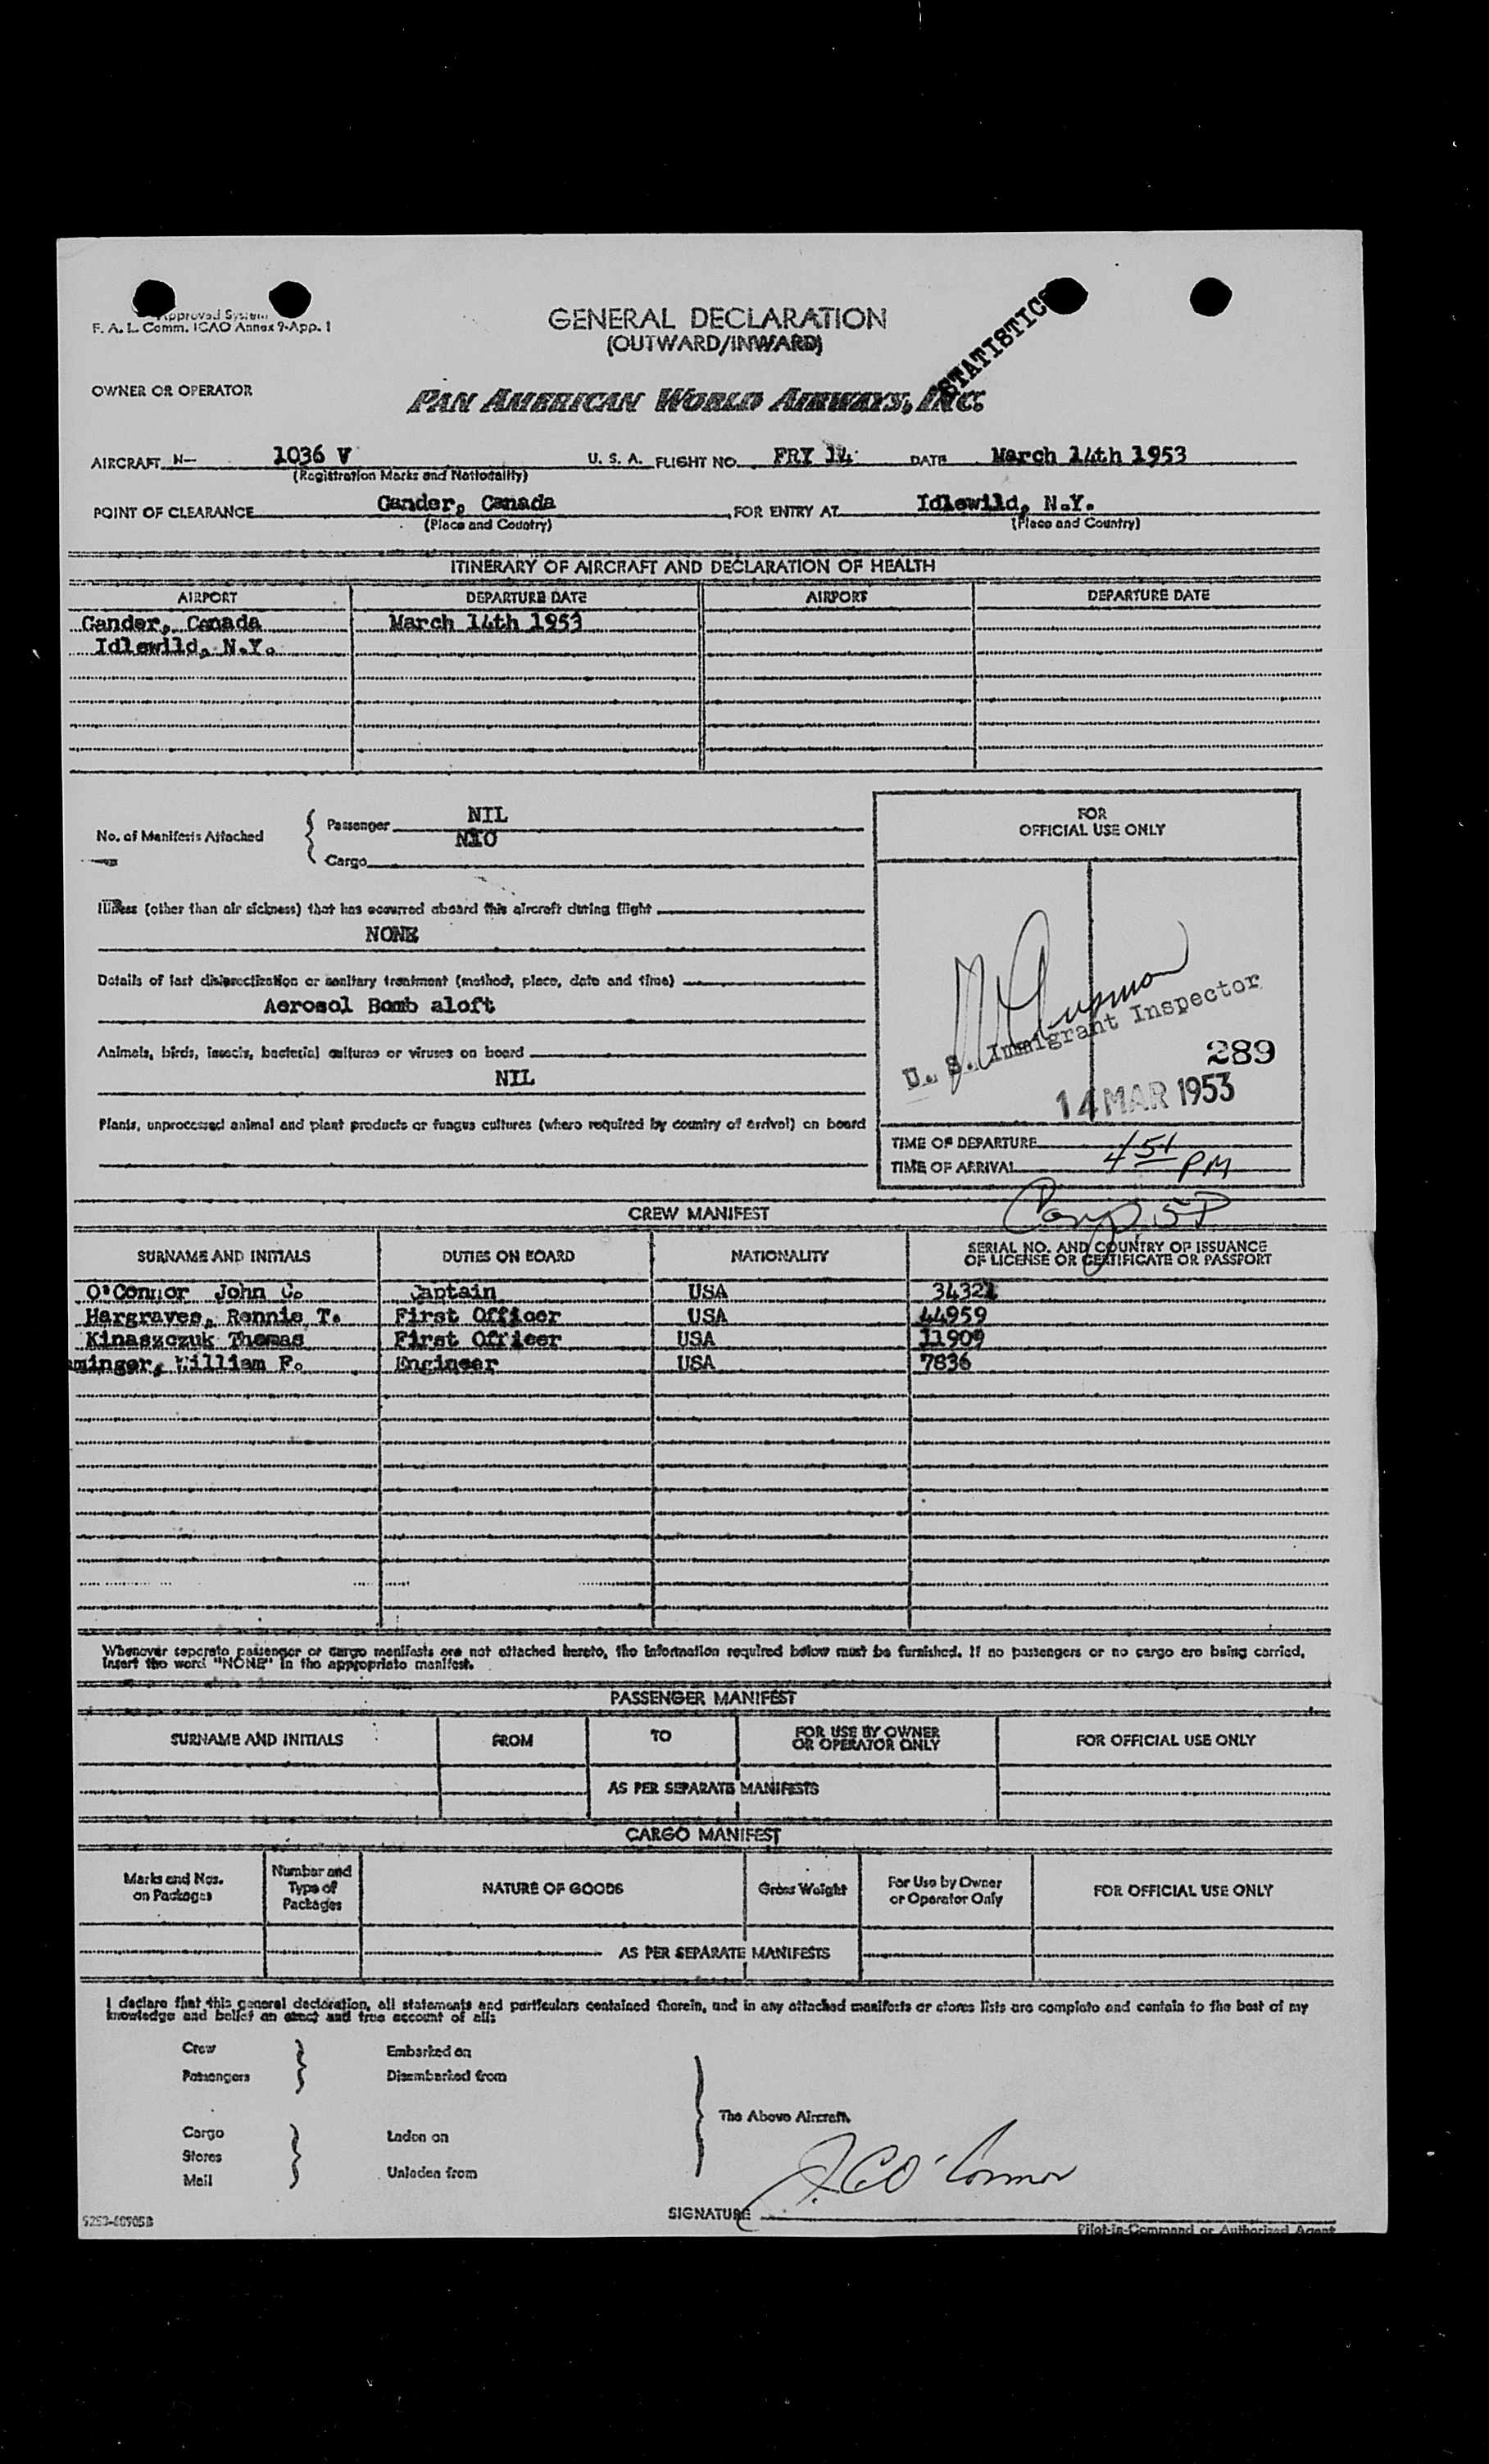 Approved System
F. A. L. Comm. ICAO Annex 9-App. 1
GENERAL DECLARATION
(OUTWARD/INWARD)
STATISTICS
OWNER OR OPERATOR
PAN AMERICAN WORLD AIRWAYS, INC.
AIRCRAFT N- 1036 V U. S. A. FLIGHT NO. FRY 14 DATE March 14th 1953
(Registration Marks and Nationality)
POINT OF CLEARANCE Gander, Canada FOR ENTRY AT Idlewild, N.Y.
(Place and Country) (Place and Country)
ITINERARY OF AIRCRAFT AND DECLARATION OF HEALTH
AIRPORT DEPARTURE DATE AIRPORT DEPARTURE DATE
Gander, Canada March 14th 1953
Idlewild, N.Y.
No. of Manifests Attached
Passenger NIL
Cargo
FOR
OFFICIAL USE ONLY
Illness (other than air sickness) that has occurred aboard this aircraft during flight
NONE
Details of last disinsectization or sanitary treatment (method, place, date and time)
Aerosol Bomb aloft
Animals, birds, insects, bacterial cultures or viruses on board
NIL
Plants, unprocessed animal and plant products or fungus cultures (where required by country of arrival) on board
U. S. Immigrant Inspector
289
14 MAR 1953
TIME OF DEPARTURE
TIME OF ARRIVAL 451 PM
CREW MANIFEST
SURNAME AND INITIALS DUTIES ON BOARD NATIONALITY SERIAL NO. AND COUNTRY OF ISSUANCE
OF LICENSE OR CERTIFICATE OR PASSPORT
O'Connor John C. Captain USA 34321
Hargraves, Rennie T. First Officer USA 44959
Kinaszczuk Thomas First Officer USA 11909
minger, William F. Engineer USA 7836
Whenever separate passenger or cargo manifests are not attached hereto, the information required below must be furnished. If no passengers or no cargo are being carried,
insert the word "NONE" in the appropriate manifest.
PASSENGER MANIFEST
SURNAME AND INITIALS FROM TO FOR USE BY OWNER
OR OPERATOR ONLY FOR OFFICIAL USE ONLY
AS PER SEPARATE MANIFESTS
CARGO MANIFEST
Marks and Nos.
on Packages Number and
Type of
Packages NATURE OF GOODS Gross Weight For Use by Owner
or Operator Only FOR OFFICIAL USE ONLY
AS PER SEPARATE MANIFESTS
I declare that this general declaration, all statements and particulars contained therein, and in any attached manifests or stores lists are complete and contain to the best of my
knowledge and belief an exact and true account of all:
Crew Embarked on
Passengers Disembarked from
The Above Aircraft.
Cargo Laden on
Stores
Mail Unladen from
SIGNATURE J.C. O'Connor
Pilot-in-Command or Authorized Agent